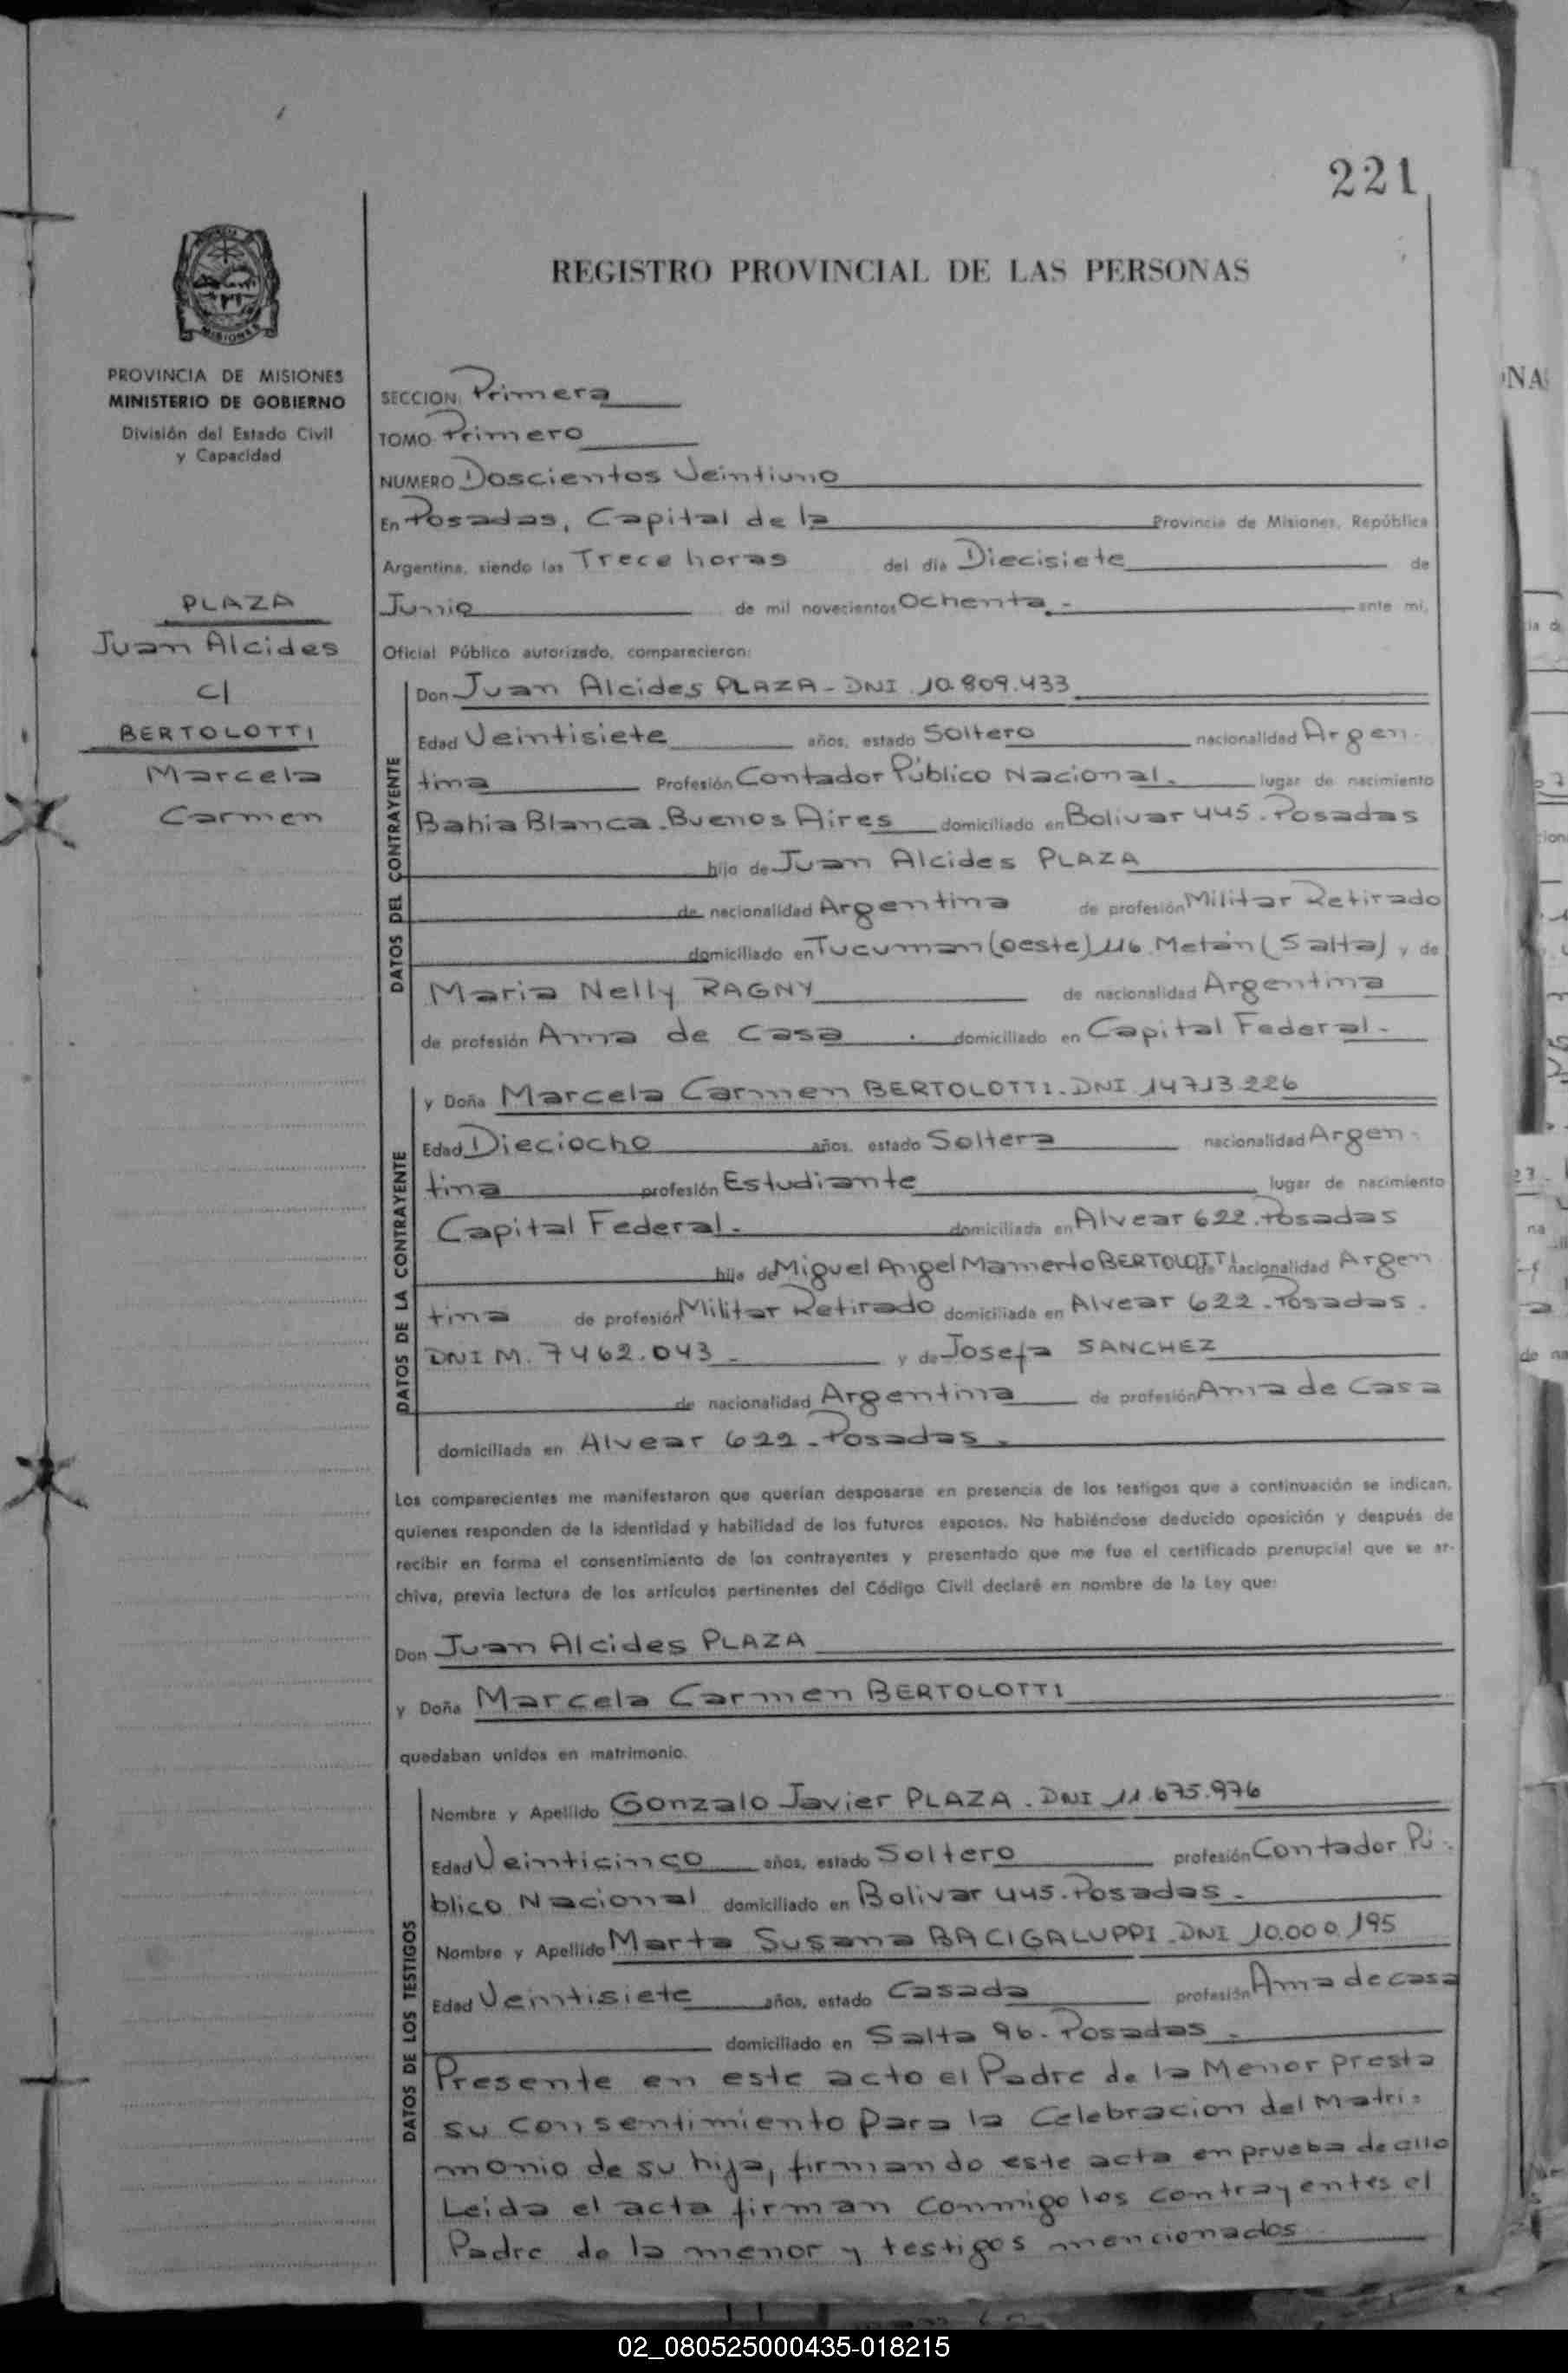 221
REGISTRO PROVINCIAL DE LAS PERSONAS
MISIONES
PROVINCIA DE MISIONES
MINISTERIO DE GOBIERNO
División del Estado Civil
y Capacidad
PLAZA
Juan Alcides
c/
BERTOLOTTI
Marcela
Carmen
SECCION: Primera
TOMO Primero
NUMERO Doscientos Veintiuno
En Posadas, Capital de la Provincia de Misiones, República
Argentina, siendo las Trece horas del día Diecisiete de
Junio de mil novecientos Ochenta.- ante mí,
Oficial Público autorizado, comparecieron:
DATOS DEL CONTRAYENTE
Don Juan Alcides PLAZA - DNI 10.809.433
Edad Veintisiete años, estado Soltero nacionalidad Argen-
tina Profesión Contador Público Nacional. lugar de nacimiento
Bahia Blanca. Buenos Aires domiciliado en Bolivar 445. Posadas
hijo de Juan Alcides PLAZA
de nacionalidad Argentina de profesión Militar Retirado
domiciliado en Tucuman (oeste) 116. Metán (Salta) y de
Maria Nelly RAGNY de nacionalidad Argentina
de profesión Ama de Casa . domiciliado en Capital Federal.-
DATOS DE LA CONTRAYENTE
y Doña Marcela Carmen BERTOLOTTI. DNI 14713.226
Edad Dieciocho años, estado Soltera nacionalidad Argen-
tina profesión Estudiante lugar de nacimiento
Capital Federal.- domiciliada en Alvear 622. Posadas
hija de Miguel Angel Mamerto BERTOLOTTI de nacionalidad Argen
tina de profesión Militar Retirado domiciliada en Alvear 622 - Posadas.
DNI M. 7462.043 - y de Josefa SANCHEZ
de nacionalidad Argentina de profesión Ama de Casa
domiciliada en Alvear 622 - Posadas.
Los comparecientes me manifestaron que querían desposarse en presencia de los testigos que a continuación se indican,
quienes responden de la identidad y habilidad de los futuros esposos. No habiéndose deducido oposición y después de
recibir en forma el consentimiento de los contrayentes y presentado que me fue el certificado prenupcial que se ar-
chiva, previa lectura de los artículos pertinentes del Código Civil declaré en nombre de la Ley que:
Don Juan Alcides PLAZA
y Doña Marcela Carmen BERTOLOTTI
quedaban unidos en matrimonio.
DATOS DE LOS TESTIGOS
Nombre y Apellido Gonzalo Javier PLAZA. DNI 11.675.976
Edad Veinticinco años, estado Soltero profesión Contador Pú-
blico Nacional domiciliado en Bolivar 445. Posadas.-
Nombre y Apellido Marta Susana BACIGALUPPI. DNI 10.000.195
Edad Veintisiete años, estado Casada profesión Ama de casa
domiciliado en Salta 96 - Posadas.-
Presente en este acto el Padre de la Menor presta
su consentimiento para la Celebracion del Matri-
monio de su hija, firmando este acta en prueba de ello
Leida el acta firman conmigo los contrayentes el
Padre de la menor y testigos mencionados
02_080525000435-018215